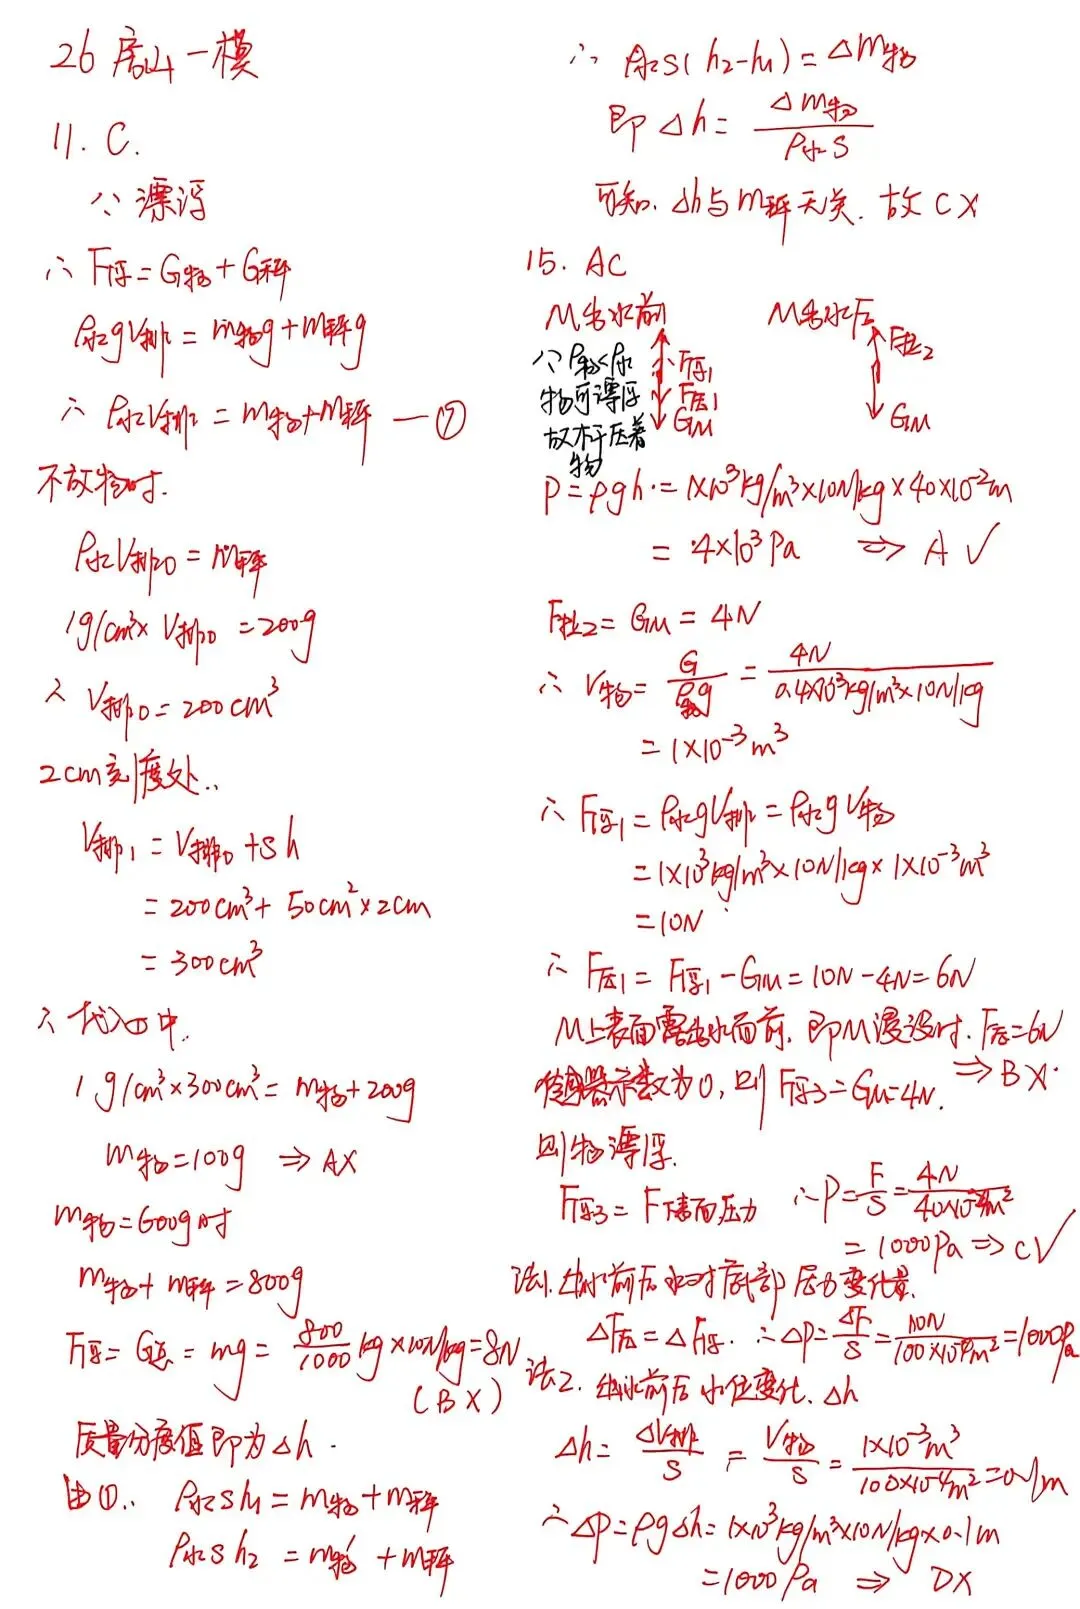 26 房山一模
11. C.
∵ 漂浮
∴ F浮 = G物 + G秤
ρ水gV排 = m物g + m秤g
∴ ρ水V排 = m物 + m秤 —①
不放物时.
ρ水V排0 = m秤
1g/cm³ × V排0 = 200g
∴ V排0 = 200cm³
2cm刻度处..
V排1 = V排0 + sh
= 200cm³ + 50cm² × 2cm
= 300cm³
∴ 代入①中.
1g/cm³ × 300cm³ = m物 + 200g
m物 = 100g ⇒ A×
m物 = 600g时
m物 + m秤 = 800g
F浮 = G总 = mg = 800/1000 kg × 10N/kg = 8N
(B×)
质量分度值即为Δh.
由①.. ρ水sh₁ = m物 + m秤
ρ水sh₂ = m物′ + m秤
∴ ρ水s(h₂-h₁) = Δm物
即 Δh = Δm物/ρ水s
可知. Δh与m秤无关. 故C×
15. AC
M出水前 M出水后
F浮1 F拉2
F压1
GM GM
∵ ρ物<ρ水
物可漂浮
故杆压着
物
P = ρgh = 1×10³kg/m³×10N/kg×40×10⁻²m
= 4×10³Pa ⇒ A✓
F拉2 = GM = 4N
∴ V物 = G/ρ物g = 4N/0.4×10³kg/m³×10N/kg
= 1×10⁻³m³
∴ F浮1 = ρ水gV排 = ρ水gV物
= 1×10³kg/m³×10N/kg×1×10⁻³m³
= 10N
∴ F压1 = F浮1 - GM = 10N - 4N = 6N
M上表面露出水面前. 即M浸没时. F压 = 6N
⇒ B×.
传感器示数为0, 则F浮3 = GM = 4N.
则物漂浮.
F浮3 = F下表面压力 ∴ P = F/S = 4N/40×10⁻⁴m²
= 1000Pa ⇒ C✓
法1. 出水前后水对底部压力变化量.
ΔF压 = ΔF浮. ∴ ΔP = ΔF/S = 10N/100×10⁻⁴m² = 1000Pa
法2. 出水前后水位变化. Δh
Δh = ΔV排/S = V物/S = 1×10⁻³m³/100×10⁻⁴m² = 0.1m
∴ ΔP = ρgΔh = 1×10³kg/m³×10N/kg×0.1m
= 1000Pa ⇒ D×